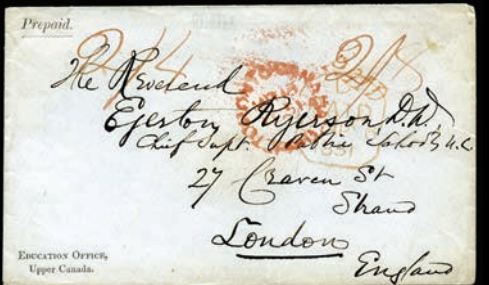 Prepaid.
2/4
The Reverend
Egerton Ryerson D.D.
Chief Supt. Public Schools U.C.
27 Craven St
Strand
London
England
EDUCATION OFFICE,
Upper Canada.